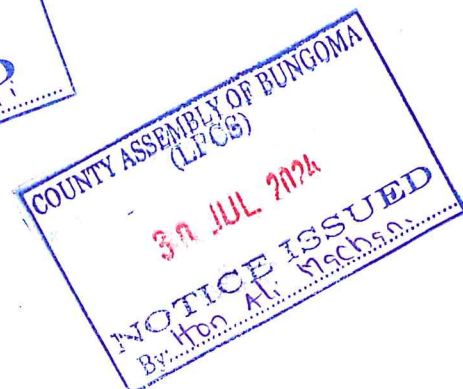 COUNTY ASSEMBLY OF BUNGOMA
(LPCS)
30 JUL 2024
NOTICE ISSUED
By: Hon Ali Machani